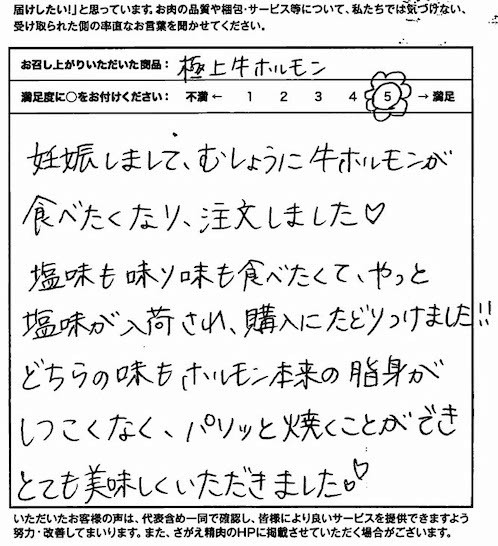 届けしたい！」と思っています。お肉の品質や梱包・サービス等について、私たちでは気づけない、
受け取られた側の率直なお言葉を聞かせてください。
お召し上がりいただいた商品： 極上牛ホルモン
満足度に○をお付けください： 不満 ← 1 2 3 4 5 → 満足
妊娠しまして、むしょうに牛ホルモンが
食べたくなり、注文しました♡
塩味も味ソ味も食べたくて、やっと
塩味が入荷され、購入にたどりつけました!!
どちらの味もホルモン本来の脂身が
しつこくなく、パリッと焼くことができ
とても美味しくいただきました♡♡
いただいたお客様の声は、代表含め一同で確認し、皆様により良いサービスを提供できますよう
努力・改善してまいります。また、さがえ精肉のHPに掲載させていただく場合がございます。